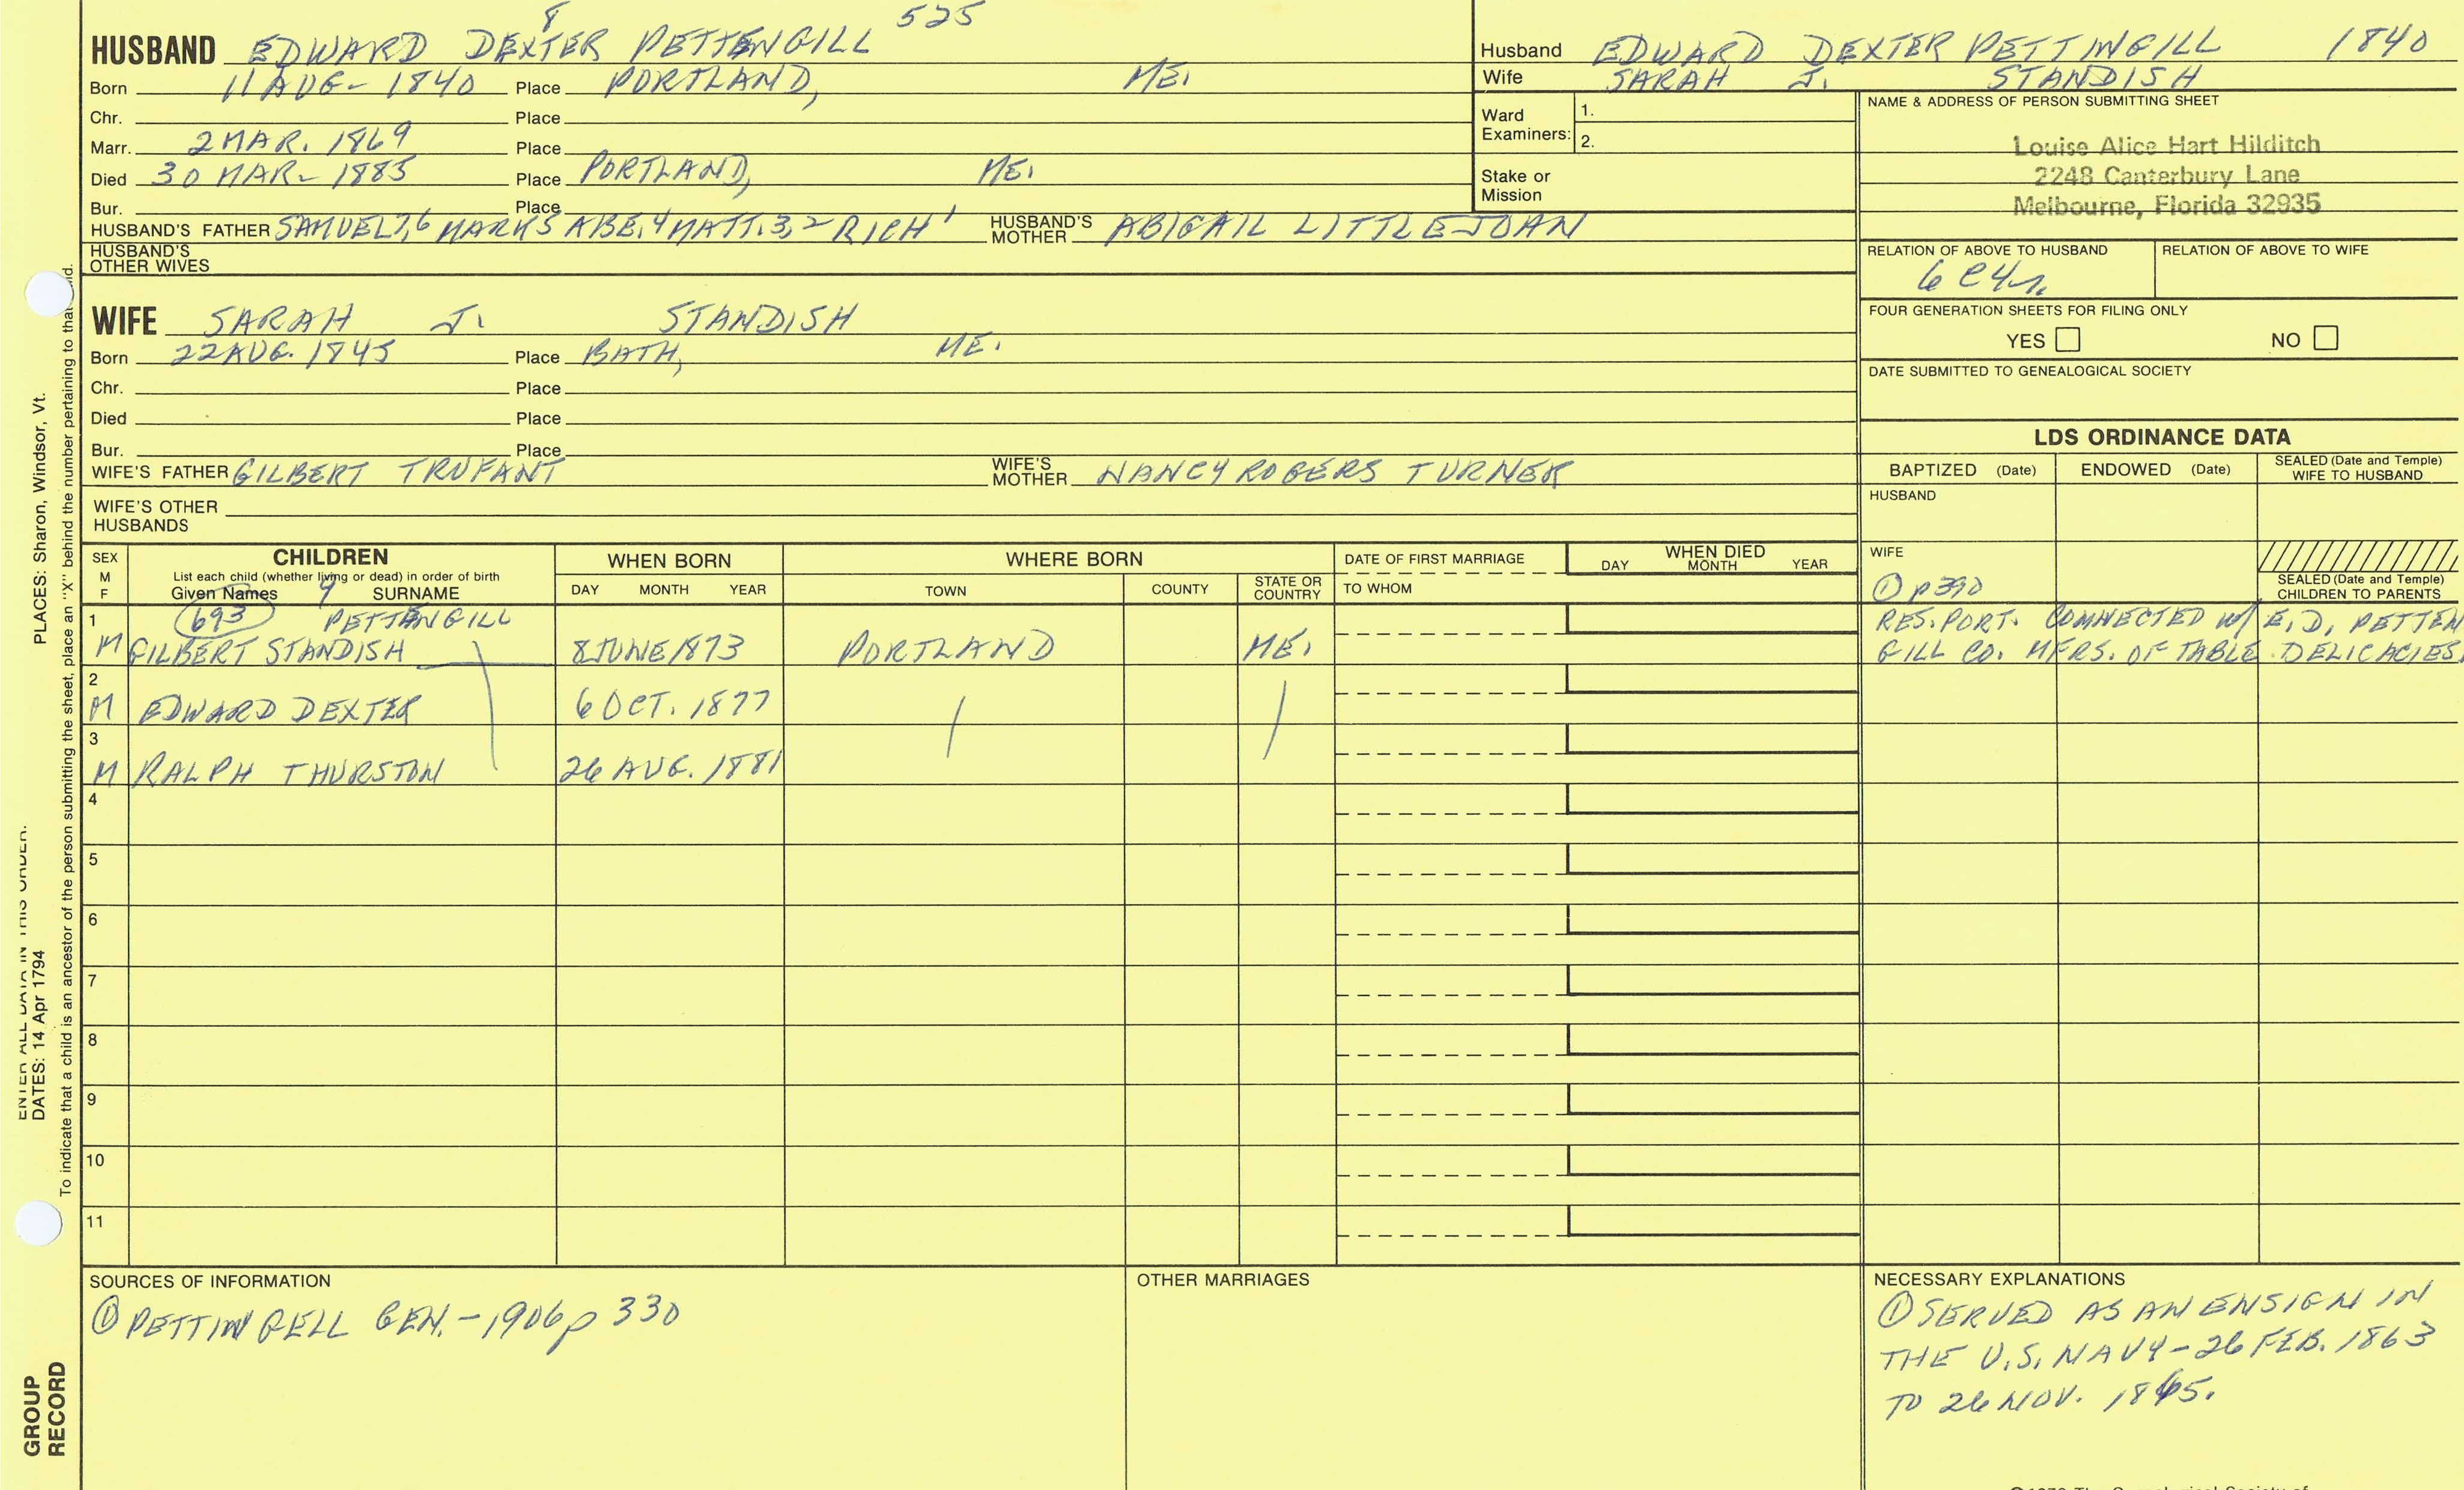 8 525
HUSBAND EDWARD DEXTER PETTENGILL
Born 11 AUG- 1840 Place PORTLAND, ME.
Chr. Place
Marr. 2 MAR. 1869 Place
Died 30 MAR- 1885 Place PORTLAND, ME.
Bur. Place
HUSBAND'S FATHER SAMUEL 7,6 MARK 5 ABE. 4 MATT. 3, 2 RICH 1 HUSBAND'S MOTHER ABIGAIL LITTLEJOHN
HUSBAND'S
OTHER WIVES
WIFE SARAH J. STANDISH
Born 22 AUG. 1845 Place BATH, ME.
Chr. Place
Died Place
Bur. Place
WIFE'S FATHER GILBERT TRUFANT WIFE'S MOTHER NANCY ROGERS TURNER
WIFE'S OTHER
HUSBANDS
Husband EDWARD DEXTER PETTINGILL 1840
Wife SARAH J. STANDISH
Ward
Examiners:
1.
2.
Stake or
Mission
NAME & ADDRESS OF PERSON SUBMITTING SHEET
Louise Alice Hart Hilditch
2248 Canterbury Lane
Melbourne, Florida 32935
RELATION OF ABOVE TO HUSBAND RELATION OF ABOVE TO WIFE
6 C4r.
FOUR GENERATION SHEETS FOR FILING ONLY
YES NO
DATE SUBMITTED TO GENEALOGICAL SOCIETY
LDS ORDINANCE DATA
BAPTIZED (Date) ENDOWED (Date) SEALED (Date and Temple)
WIFE TO HUSBAND
HUSBAND
WIFE
① p390
SEALED (Date and Temple)
CHILDREN TO PARENTS
SEX
M
F
CHILDREN
List each child (whether living or dead) in order of birth
Given Names 9 SURNAME
WHEN BORN
DAY MONTH YEAR
WHERE BORN
TOWN COUNTY STATE OR COUNTRY
DATE OF FIRST MARRIAGE
TO WHOM
WHEN DIED
DAY MONTH YEAR
1 693 PETTENGILL RES. PORT. CONNECTED W/ E. D. PETTEN
M GILBERT STANDISH 8 JUNE 1873 PORTLAND ME. GILL CO. MFRS. OF TABLE DELICACIES.
2
M EDWARD DEXTER 6 OCT. 1877
3
M RALPH THURSTON 26 AUG. 1881
4
5
6
7
8
9
10
11
SOURCES OF INFORMATION
① PETTINGELL GEN. - 1906 p 330
OTHER MARRIAGES
NECESSARY EXPLANATIONS
① SERVED AS AN ENSIGN IN
THE U.S. NAVY - 26 FEB. 1863
TO 26 NOV. 1865.
PLACES: Sharon, Windsor, Vt.
ENTER ALL DATA IN THIS ORDER:
DATES: 14 Apr 1794
To indicate that a child is an ancestor of the person submitting the sheet, place an "X" behind the number pertaining to that
GROUP
RECORD